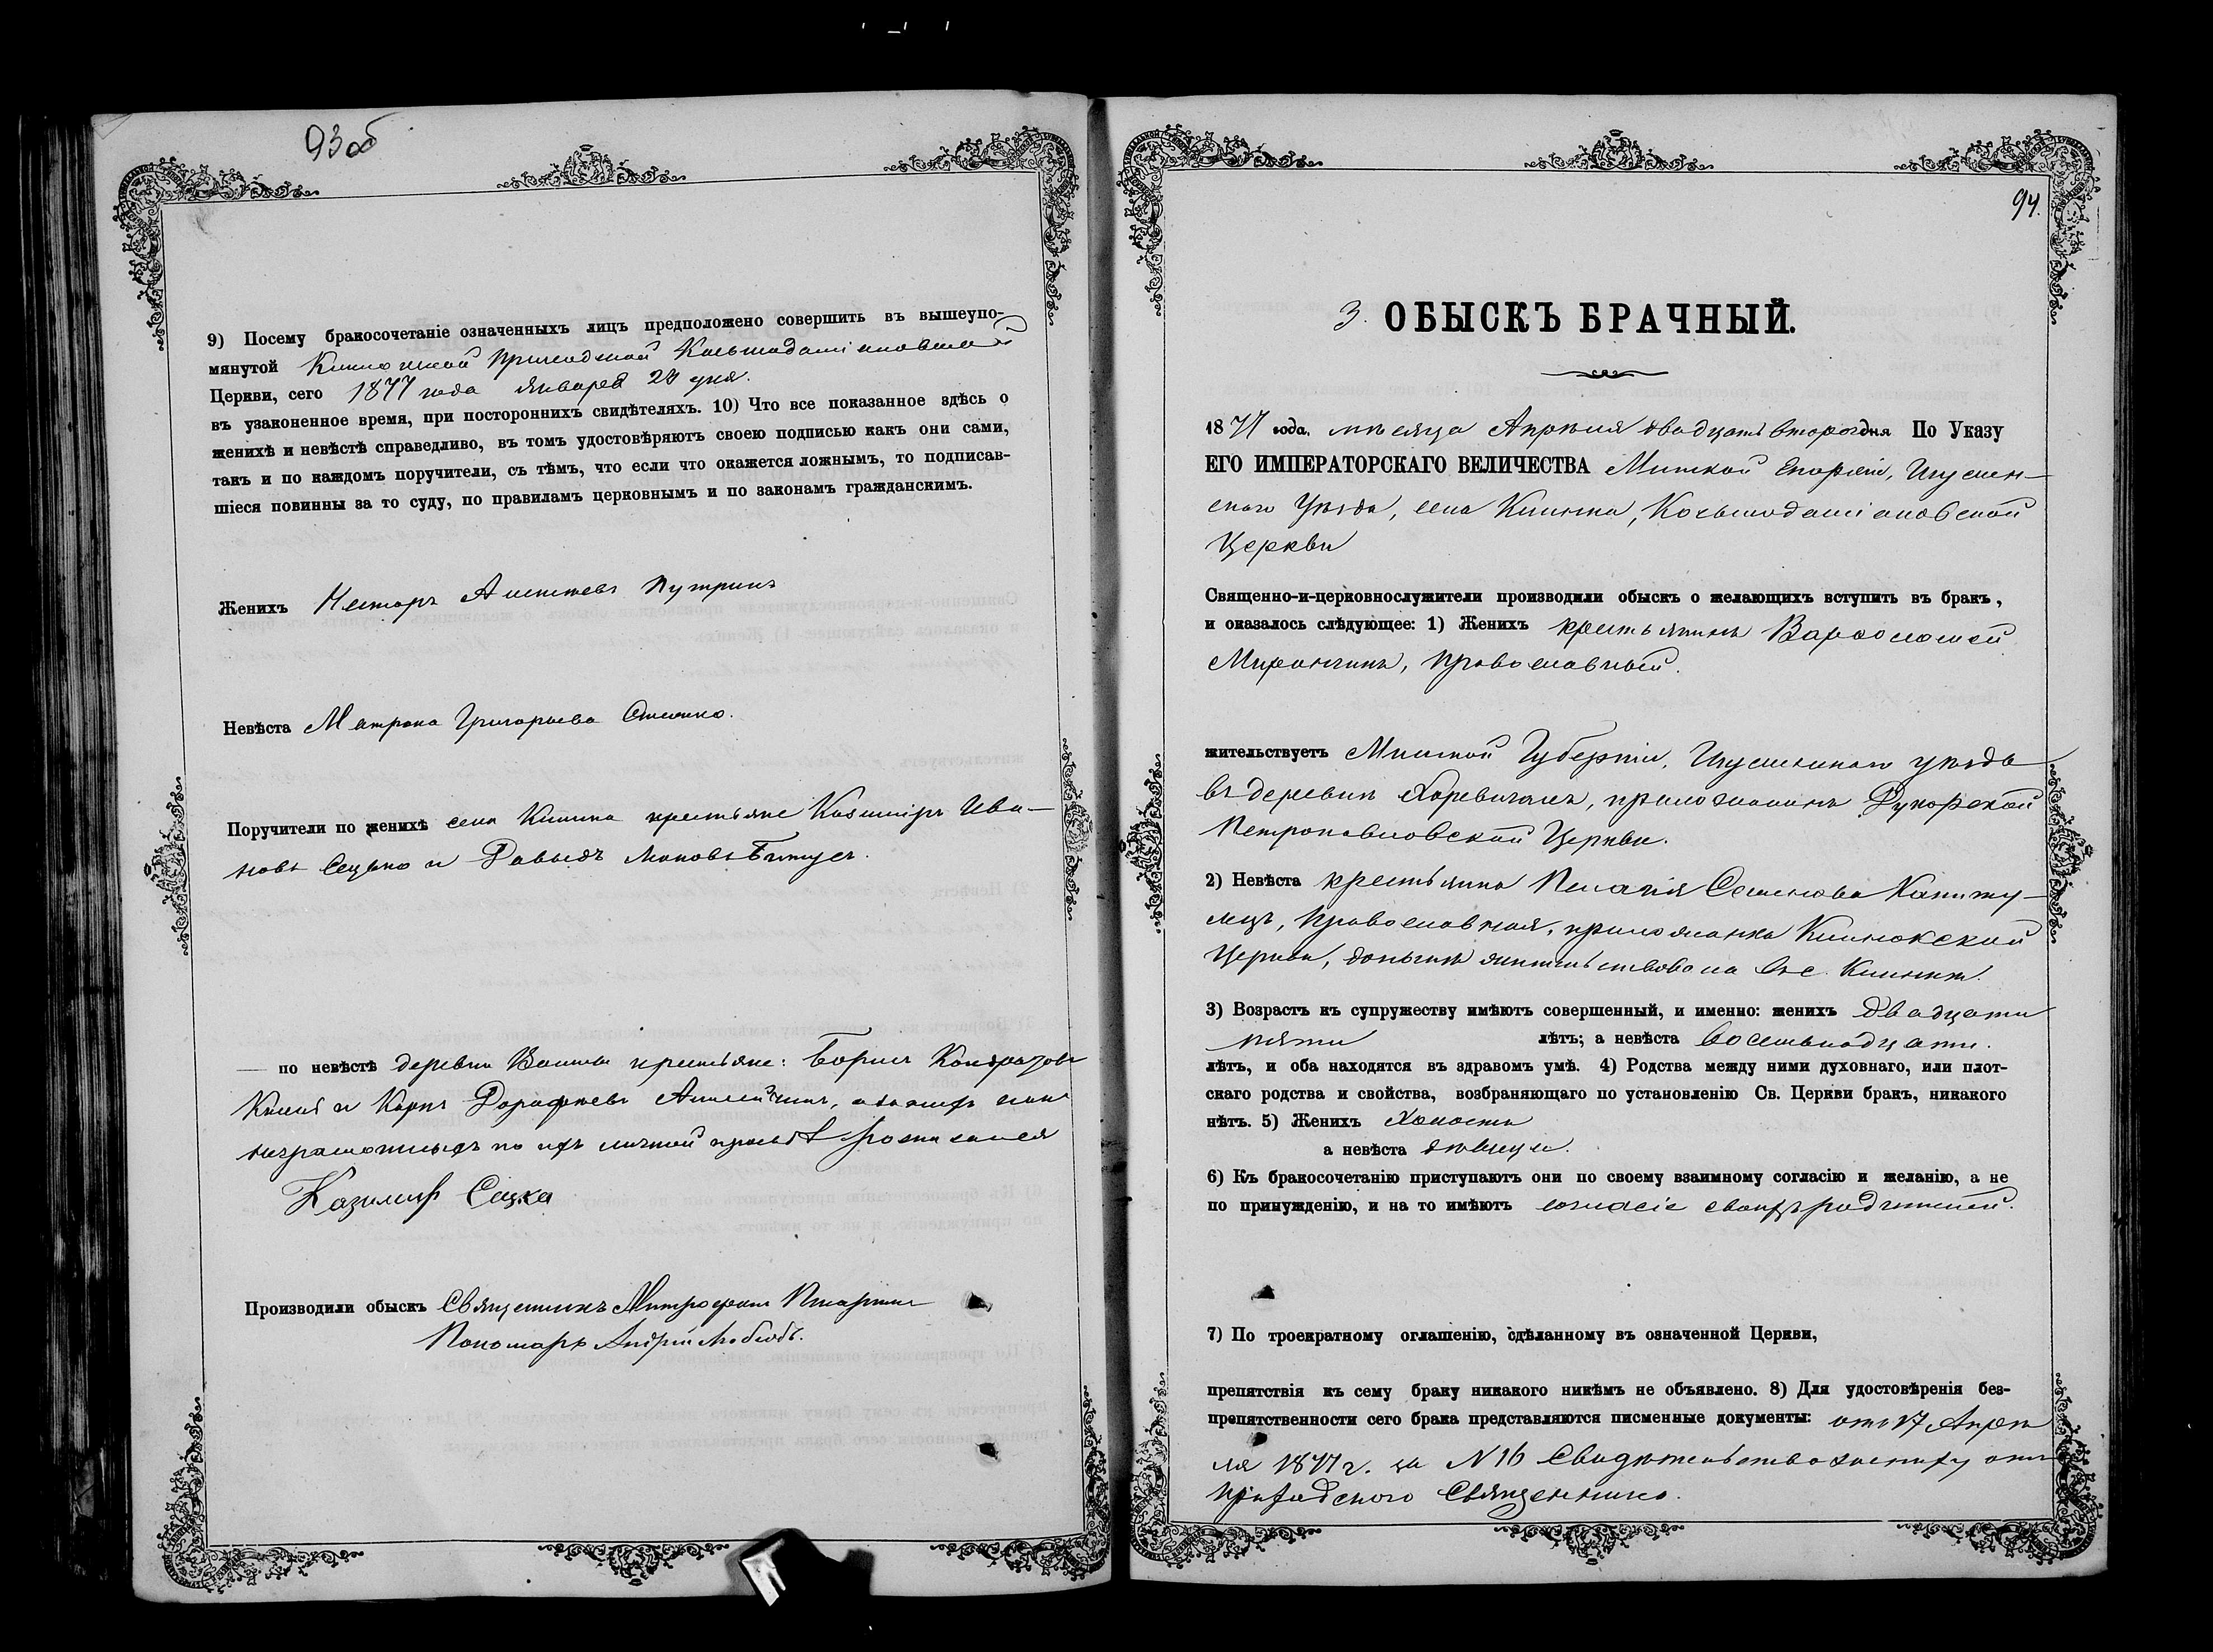 93 об
9) Посему бракосочетаніе означенныхъ лицъ предположено совершить въ вышеупо-
мянутой Клинокской приходской Косьмодаміановской
Церкви, сего 1877 года января 24 дня.
въ узаконенное время, при постороннихъ свидѣтеляхъ. 10) Что все показанное здѣсь о
женихѣ и невѣстѣ справедливо, въ томъ удостовѣряютъ своею подписью какъ они сами,
такъ и по каждомъ поручители, съ тѣмъ, что если что окажется ложнымъ, то подписав-
шіеся повинны за то суду, по правиламъ церковнымъ и по законамъ гражданскимъ.
Женихъ Несторъ
Невѣста Матрона Григорьева
Поручители по женихѣ села Клинка крестьяне Казиміръ Ива-
новъ Сецько и Давыдъ
— по невѣстѣ деревни крестьяне: Борисъ
и Карпъ Дорофѣевъ
неграмотныхъ по ихъ личной просьбѣ росписался
Казимиръ Сецка
Производили обыскъ Священникъ Митрофанъ
Пономарь Андрій
94.
3. ОБЫСКЪ БРАЧНЫЙ.
1877 года, мѣсяца Апрѣля двадцать втораго дня По Указу
ЕГО ИМПЕРАТОРСКАГО ВЕЛИЧЕСТВА Минской Епархіи, Игумен-
скаго Уѣзда, села Клинка, Косьмодаміановской
Церкви
Священно-и-церковнослужители производили обыскъ о желающихъ вступить въ бракъ,
и оказалось слѣдующее: 1) Женихъ крестьянинъ Варфоломей
Миранчикъ, православный.
жительствуетъ Минской Губерніи, Игуменскаго уѣзда
въ деревнѣ Хоревичахъ, прихожанинъ Дукорской
Петропавловской Церкви.
2) Невѣста крестьянка Пелагія Семенова Капту-
лецъ, православная, прихожанка Клинокской
Церкви, донынѣ жительствовала въ с. Клинкѣ.
3) Возрастъ къ супружеству имѣютъ совершенный, и именно: женихъ двадцати
пяти лѣтъ; а невѣста восемнадцати.
лѣтъ, и оба находятся въ здравомъ умѣ. 4) Родства между ними духовнаго, или плот-
скаго родства и свойства, возбраняющаго по установленію Св. Церкви бракъ, никакого
нѣтъ. 5) Женихъ холостъ
а невѣста дѣвица.
6) Къ бракосочетанію приступаютъ они по своему взаимному согласію и желанію, а не
по принужденію, и на то имѣютъ согласіе своихъ родителей.
7) По троекратному оглашенію, сдѣланному въ означенной Церкви,
препятствія къ сему браку никакого никѣмъ не объявлено. 8) Для удостовѣренія без-
препятственности сего брака представляются писменные документы: отъ 17 Апрѣ
ля 1877 г. за N 16 Свидѣтельство жениху отъ
приходскаго Священника.